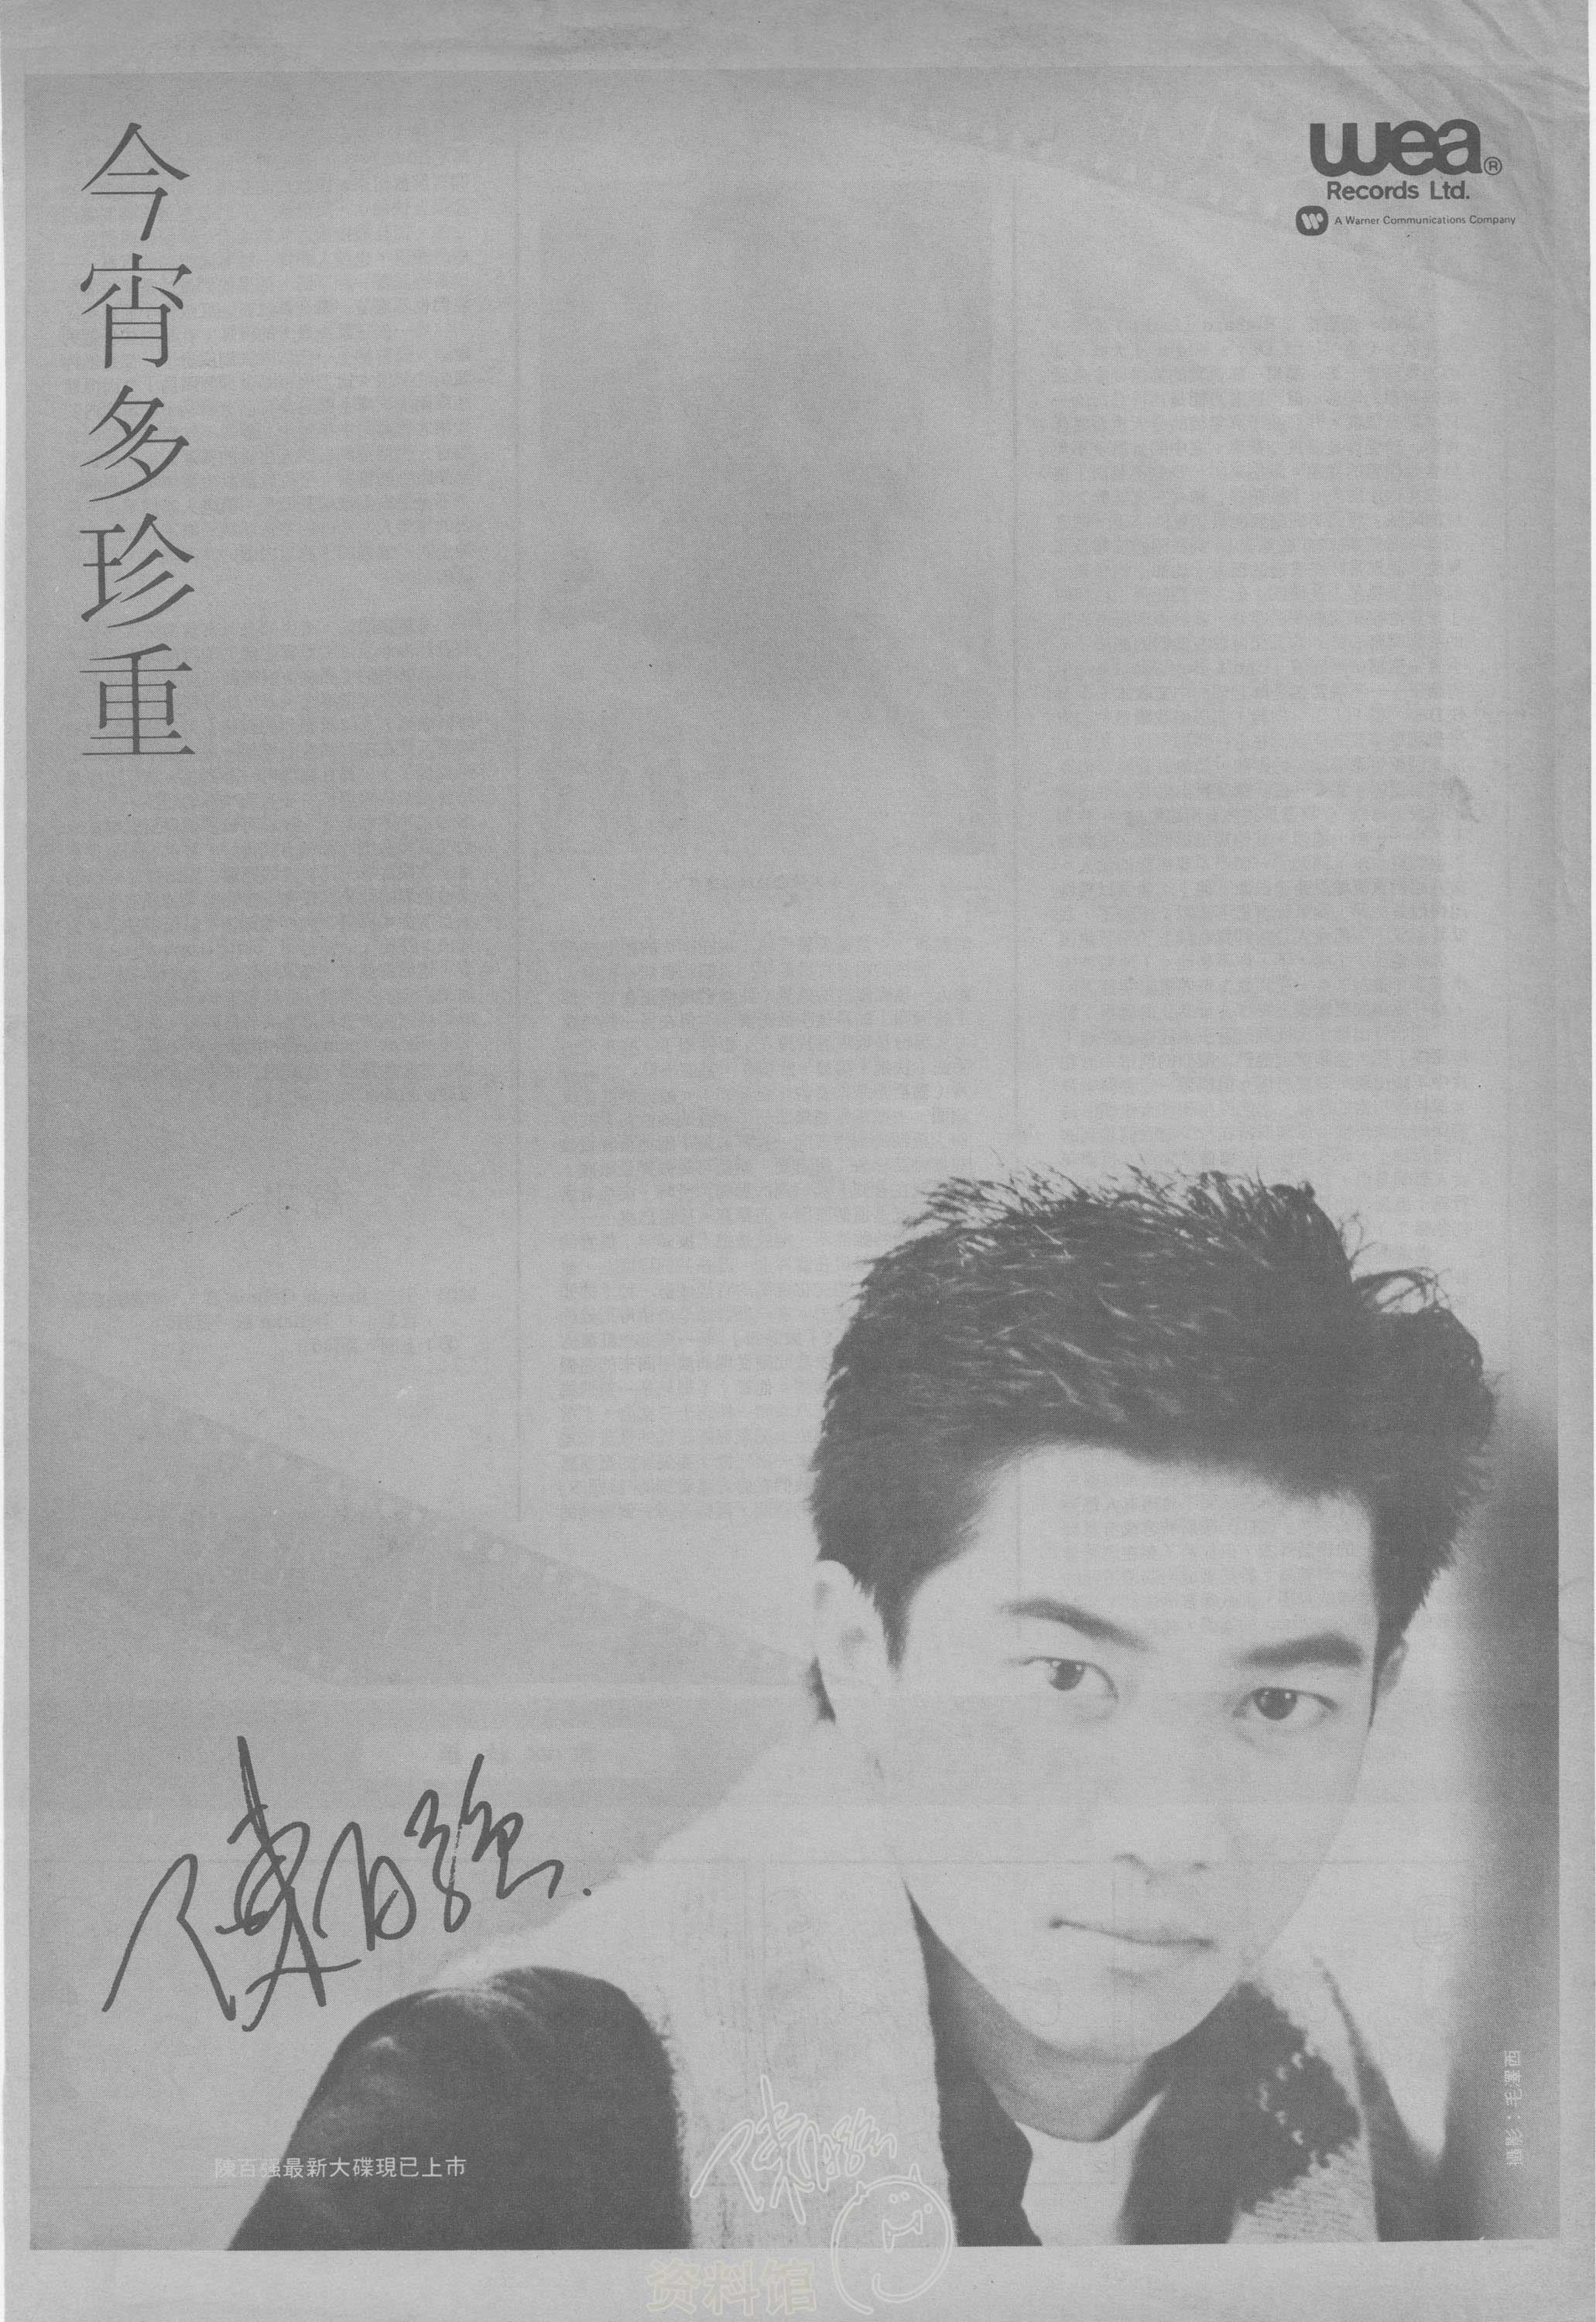 今宵多珍重
wea®
Records Ltd.
A Warner Communications Company
陳百强
陳百强最新大碟現已上市
攝影：毛澤西
陳百强
资料馆